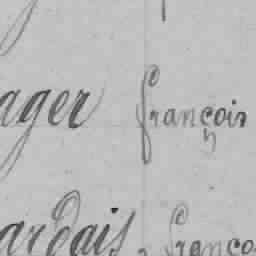 ager françois
ardais, franço